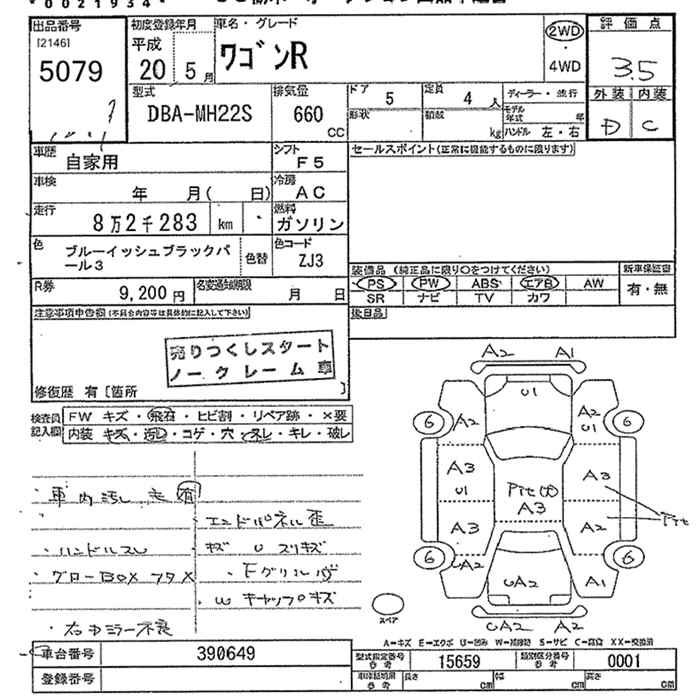 * 0 0 2 1 9 3 4 *
出品番号
[2146]
5079
初度登録年月
平成
20 5 月
車名・グレード
ワゴンR
2WD
・
4WD
評価点
3.5
外装 内装
D C
型式
DBA-MH22S
排気量
660
CC
ドア
5
定員
4 人
形状
積載
kg
ディーラー・並行
モデル年式 年
ハンドル 左・右
車歴
自家用
シフト
F5
車検
年 月( 日)
冷房
AC
走行
8万2千283 km
燃料
ガソリン
色
ブルーイッシュブラックパール3
色替
色コード
ZJ3
R券
9,200 円
名変通知期限
月 日
セールスポイント(正常に機能するものに限ります)
装備品 (純正品に限り○をつけてください)
PS PW ABS エアB AW
SR ナビ TV カワ
新車保証書
有・無
後日品
注意事項申告欄(不具合内容等は具体的に記入して下さい)
売りつくしスタート
ノークレーム車
修復歴 有 [箇所 ]
検査員記入欄
FW キズ・飛石・ヒビ割・リペア跡・×要
内装 キズ・汚れ・コゲ・穴・スレ・キレ・破レ
・車内汚レ 有
・エンドパネル歪
・ハンドルスレ
キズ U スリキズ
・グローBOX フタ X
・Fグリル
W キャップキズ
・右ドミラー不良
A2 A1
U1
6 A2
A2 U1 6
A3 U1
Pit
A3
A3
Pit
A3 A2
6 UA2
UA2
A1 6
UA2 A2
スペア
A-キズ E-エクボ U-凹み W-補修跡 S-サビ C-腐食 XX-交換済
車台番号
390649
型式指定番号
参考
15659
類別区分番号
参考
0001
登録番号
車体詰明用
参考
長さ cm
幅 cm
高さ cm